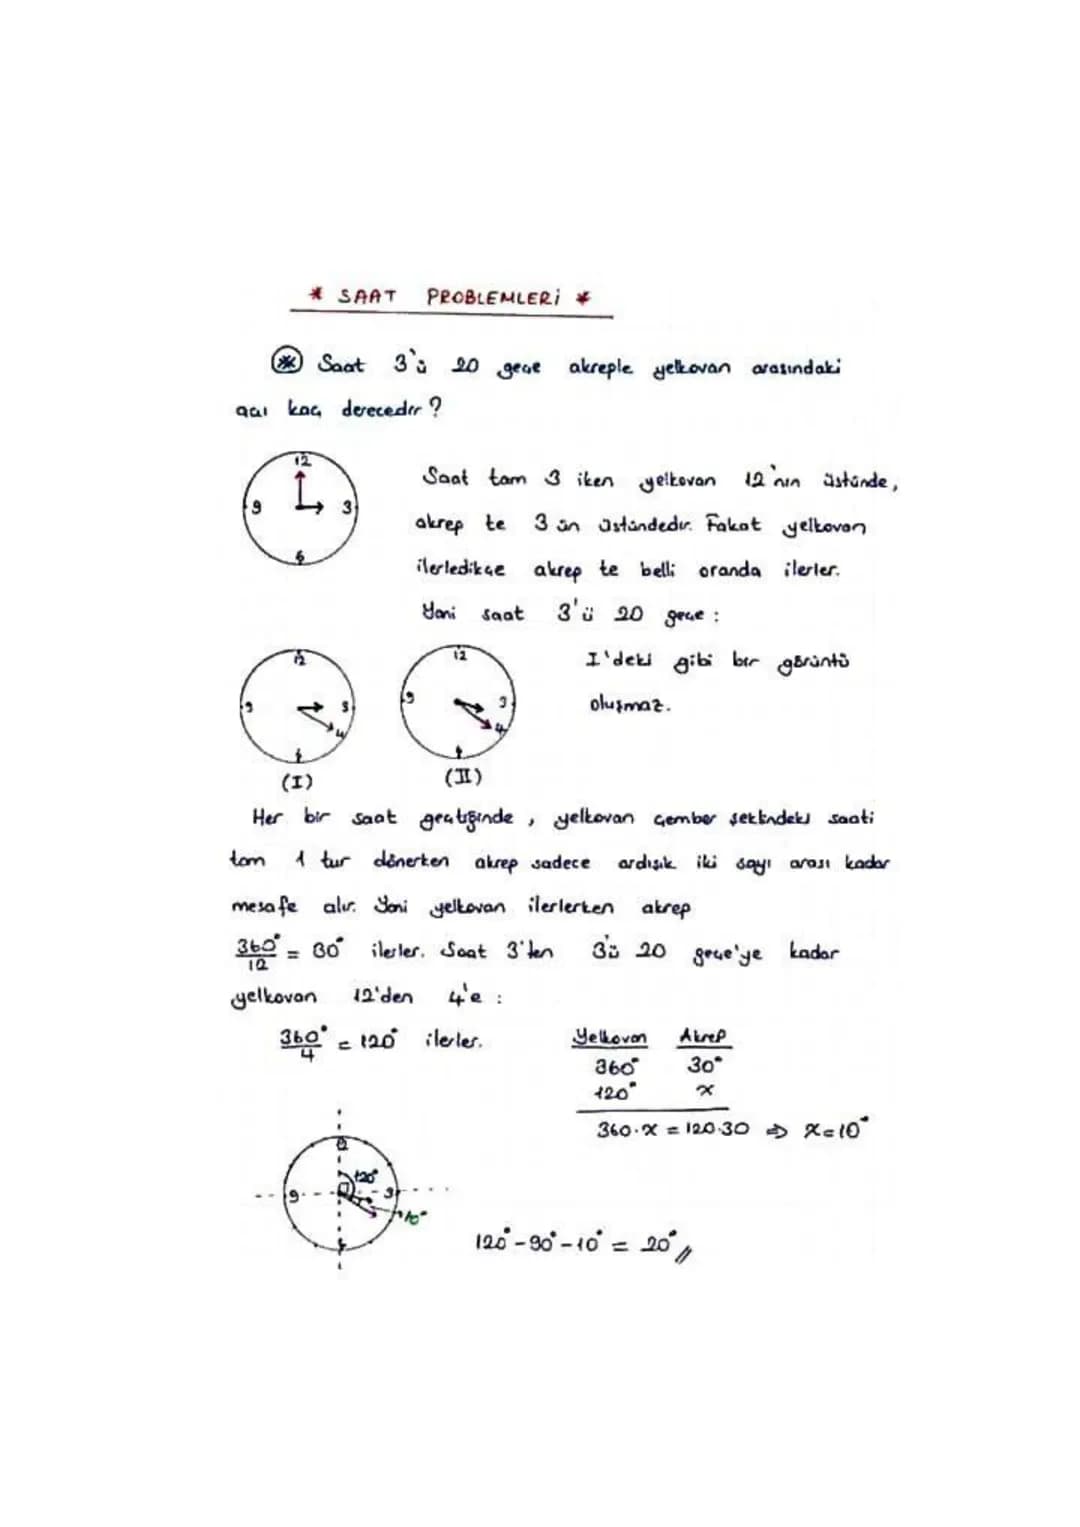 * SAAT PROBLEMLERİ *
* Saat 3'ü 20 geçe akreple yelkovan arasındaki
açı kaç derecedir?
12
9 3
6
Saat tam 3 iken yelkovan 12'nin üstünde,
akrep te 3 ün üstündedir. Fakat yelkovan
ilerledikçe akrep te belli oranda ilerler.
Yani saat 3'ü 20 geçe :
12
9 3
4
6
(I)
12
9 3
4
6
(II)
I'deki gibi bir görüntü
oluşmaz.
Her bir saat geçtiğinde, yelkovan çember şeklindeki saati
tam 1 tur dönerken akrep sadece ardışık iki sayı arası kadar
mesafe alır. Yani yelkovan ilerlerken akrep
360°/12 = 30° ilerler. Saat 3'ten 3'ü 20 geçe'ye kadar
yelkovan 12'den 4'e :
360°/4 = 120° ilerler.
Yelkovan Akrep
360° 30°
120° x
360.x = 120.30 ⇒ x=10°
12
120°
9 3
10°
6
120°-90°-10° = 20°//